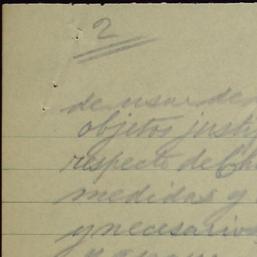 2
de usar de
objetos justi
respecto de Ch
medidas y
y necesarios